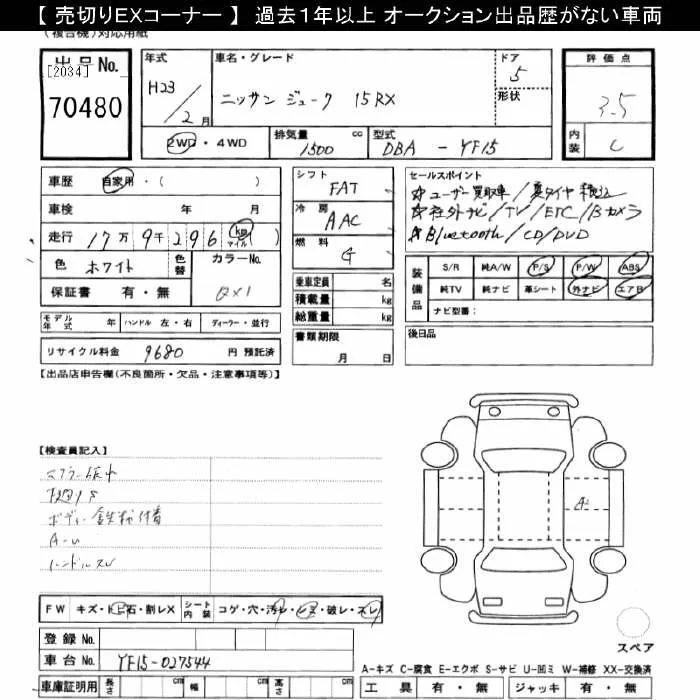 【 売切りEXコーナー 】 過去１年以上 オークション出品歴がない車両
(複合機)対応用紙
出品No.
[2034]
70480
年式
H23
2月
車名・グレード
ニッサン ジューク 15RX
ドア
5
形状
評価点
3.5
内装
C
2WD・4WD
排気量
cc
1500
型式
DBA - YF15
車歴 自家用・( )
車検 年 月
走行 17万9千296 kg マイル ( )
色 ホワイト
色替
カラーNo.
QX1
保証書 有・無
シフト
FAT
冷房
AAC
燃料
G
乗車定員 名
積載量 kg
総重量 kg
セールスポイント
☆ユーザー買取車/夏タイヤ積込
☆社外ナビ/TV/ETC/Bカメラ
☆Bluetooth/CD/DVD
装備品
S/R 純A/W P/S P/W ABS
純TV 純ナビ 革シート 外ナビ エアB
ナビ型番:
モデル年式 年 ハンドル 左・右 ディーラー・並行
リサイクル料金 9680 円 預託済
書類期限
月 日
後日品
【出品店申告欄(不良箇所・欠品・注意事項等)】
【検査員記入】
下廻りS
ボディー鉄粉付着
A-U
ハンドルスレ
A2
FW キズ・トビ石・割レX シート内装 コゲ・穴・汚レ・シミ・破レ・スレ
登録No.
車台No. YF15-027544
スペア
A-キズ C-腐食 E-エクボ S-サビ U-凹ミ W-補修 XX-交換済
車庫証明用 長さ cm 幅 cm 高さ cm
工具 有・無 ジャッキ 有・無